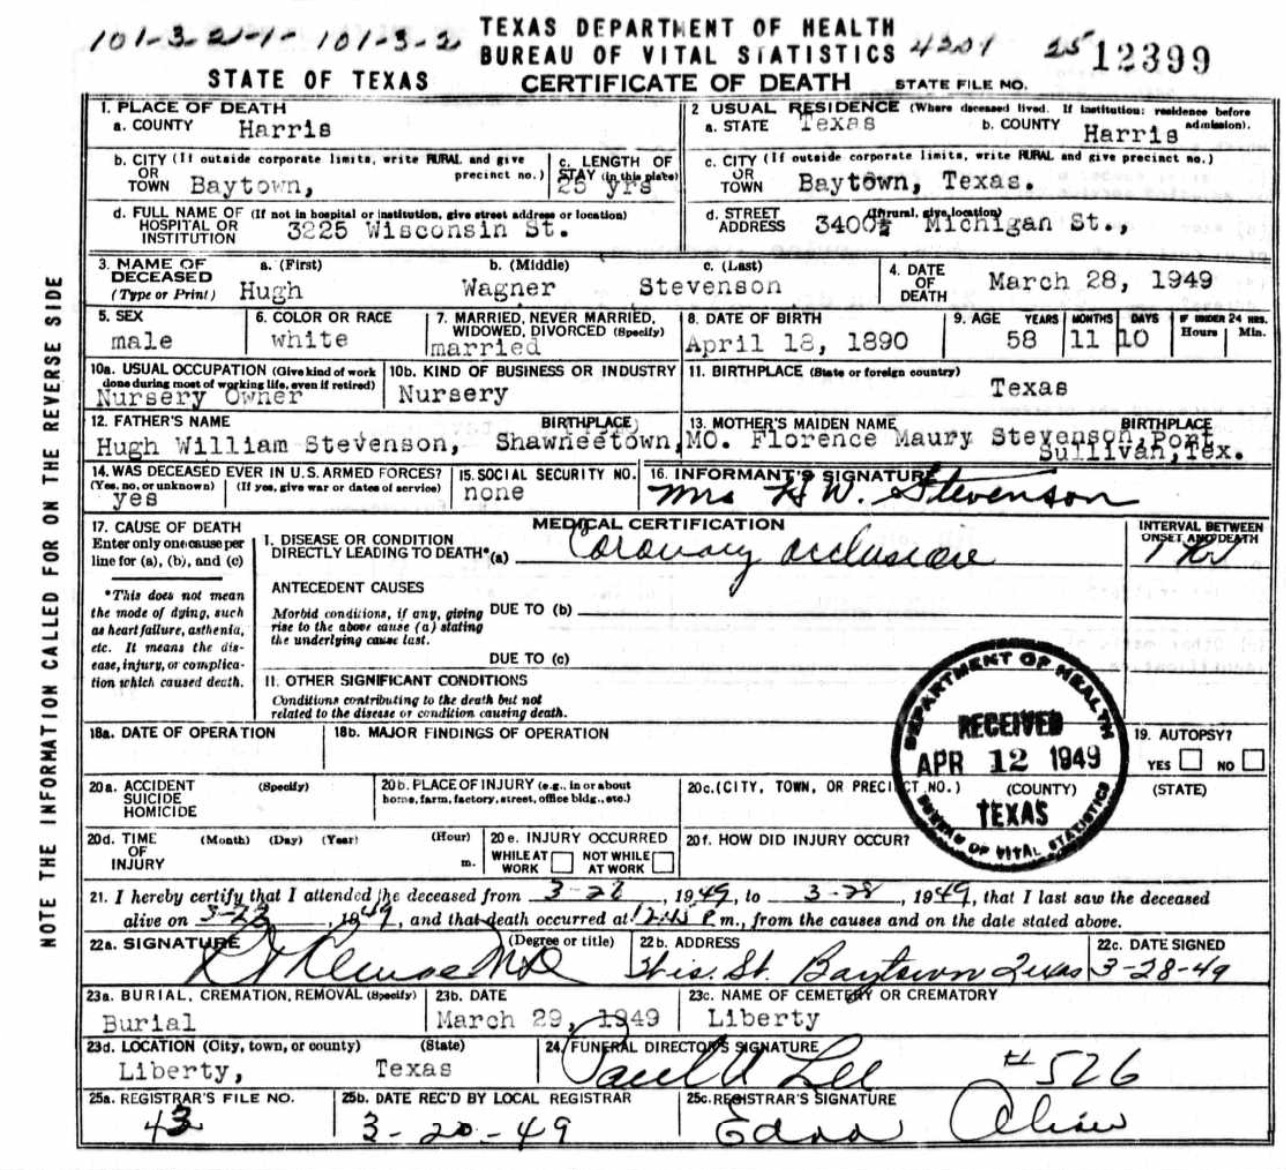 101-3-21-1- 101-3-2
TEXAS DEPARTMENT OF HEALTH
BUREAU OF VITAL STATISTICS
4201 25 12399
STATE OF TEXAS CERTIFICATE OF DEATH STATE FILE NO.
NOTE THE INFORMATION CALLED FOR ON THE REVERSE SIDE
1. PLACE OF DEATH
a. COUNTY Harris
2 USUAL RESIDENCE (Where deceased lived. If institution: residence before admission).
a. STATE Texas b. COUNTY Harris
b. CITY (If outside corporate limits, write RURAL and give precinct no.)
OR TOWN Baytown,
c. LENGTH OF STAY (in this place)
25 yrs
c. CITY (If outside corporate limits, write RURAL and give precinct no.)
OR TOWN Baytown, Texas.
d. FULL NAME OF (If not in hospital or institution, give street address or location)
HOSPITAL OR INSTITUTION 3225 Wisconsin St.
d. STREET ADDRESS (If rural, give location)
3400½ Michigan St.,
3. NAME OF DECEASED (Type or Print)
a. (First) b. (Middle) c. (Last)
Hugh Wagner Stevenson
4. DATE OF DEATH March 28, 1949
5. SEX
male
6. COLOR OR RACE
white
7. MARRIED, NEVER MARRIED, WIDOWED, DIVORCED (Specify)
married
8. DATE OF BIRTH
April 18, 1890
9. AGE YEARS MONTHS DAYS IF UNDER 24 HRS. Hours Min.
58 11 10
10a. USUAL OCCUPATION (Give kind of work done during most of working life, even if retired)
Nursery Owner
10b. KIND OF BUSINESS OR INDUSTRY
Nursery
11. BIRTHPLACE (State or foreign country)
Texas
12. FATHER'S NAME BIRTHPLACE
Hugh William Stevenson, Shawneetown, MO.
13. MOTHER'S MAIDEN NAME BIRTHPLACE
Florence Maury Stevenson, Port Sullivan, Tex.
14. WAS DECEASED EVER IN U.S. ARMED FORCES?
(Yes, no, or unknown) (If yes, give war or dates of service)
yes
15. SOCIAL SECURITY NO.
none
16. INFORMANT'S SIGNATURE
Mrs H W. Stevenson
17. CAUSE OF DEATH
Enter only one cause per line for (a), (b), and (c)
*This does not mean the mode of dying, such as heart failure, asthenia, etc. It means the disease, injury, or complication which caused death.
MEDICAL CERTIFICATION
I. DISEASE OR CONDITION DIRECTLY LEADING TO DEATH* (a) Coronary occlusion
INTERVAL BETWEEN ONSET AND DEATH
1 hr
ANTECEDENT CAUSES
Morbid conditions, if any, giving rise to the above cause (a) stating the underlying cause last.
DUE TO (b)
DUE TO (c)
II. OTHER SIGNIFICANT CONDITIONS
Conditions contributing to the death but not related to the disease or condition causing death.
DEPARTMENT OF HEALTH
RECEIVED
APR 12 1949
TEXAS
BUREAU OF VITAL STATISTICS
18a. DATE OF OPERATION
18b. MAJOR FINDINGS OF OPERATION
19. AUTOPSY?
YES NO
20a. ACCIDENT SUICIDE HOMICIDE (Specify)
20b. PLACE OF INJURY (e.g., in or about home, farm, factory, street, office bldg., etc.)
20c. (CITY, TOWN, OR PRECINCT NO.) (COUNTY) (STATE)
20d. TIME OF INJURY (Month) (Day) (Year) (Hour) m.
20e. INJURY OCCURRED
WHILE AT WORK NOT WHILE AT WORK
20f. HOW DID INJURY OCCUR?
21. I hereby certify that I attended the deceased from 3-28, 1949, to 3-28, 1949, that I last saw the deceased
alive on 1949, and that death occurred at 12:45 P m., from the causes and on the date stated above.
22a. SIGNATURE (Degree or title)
MD
22b. ADDRESS
St. Baytown Texas
22c. DATE SIGNED
3-28-49
23a. BURIAL, CREMATION, REMOVAL (Specify)
Burial
23b. DATE
March 29, 1949
23c. NAME OF CEMETERY OR CREMATORY
Liberty
23d. LOCATION (City, town, or county) (State)
Liberty, Texas
24. FUNERAL DIRECTOR'S SIGNATURE
Paul U Lee #526
25a. REGISTRAR'S FILE NO.
43
25b. DATE REC'D BY LOCAL REGISTRAR
3-20-49
25c. REGISTRAR'S SIGNATURE
Edna